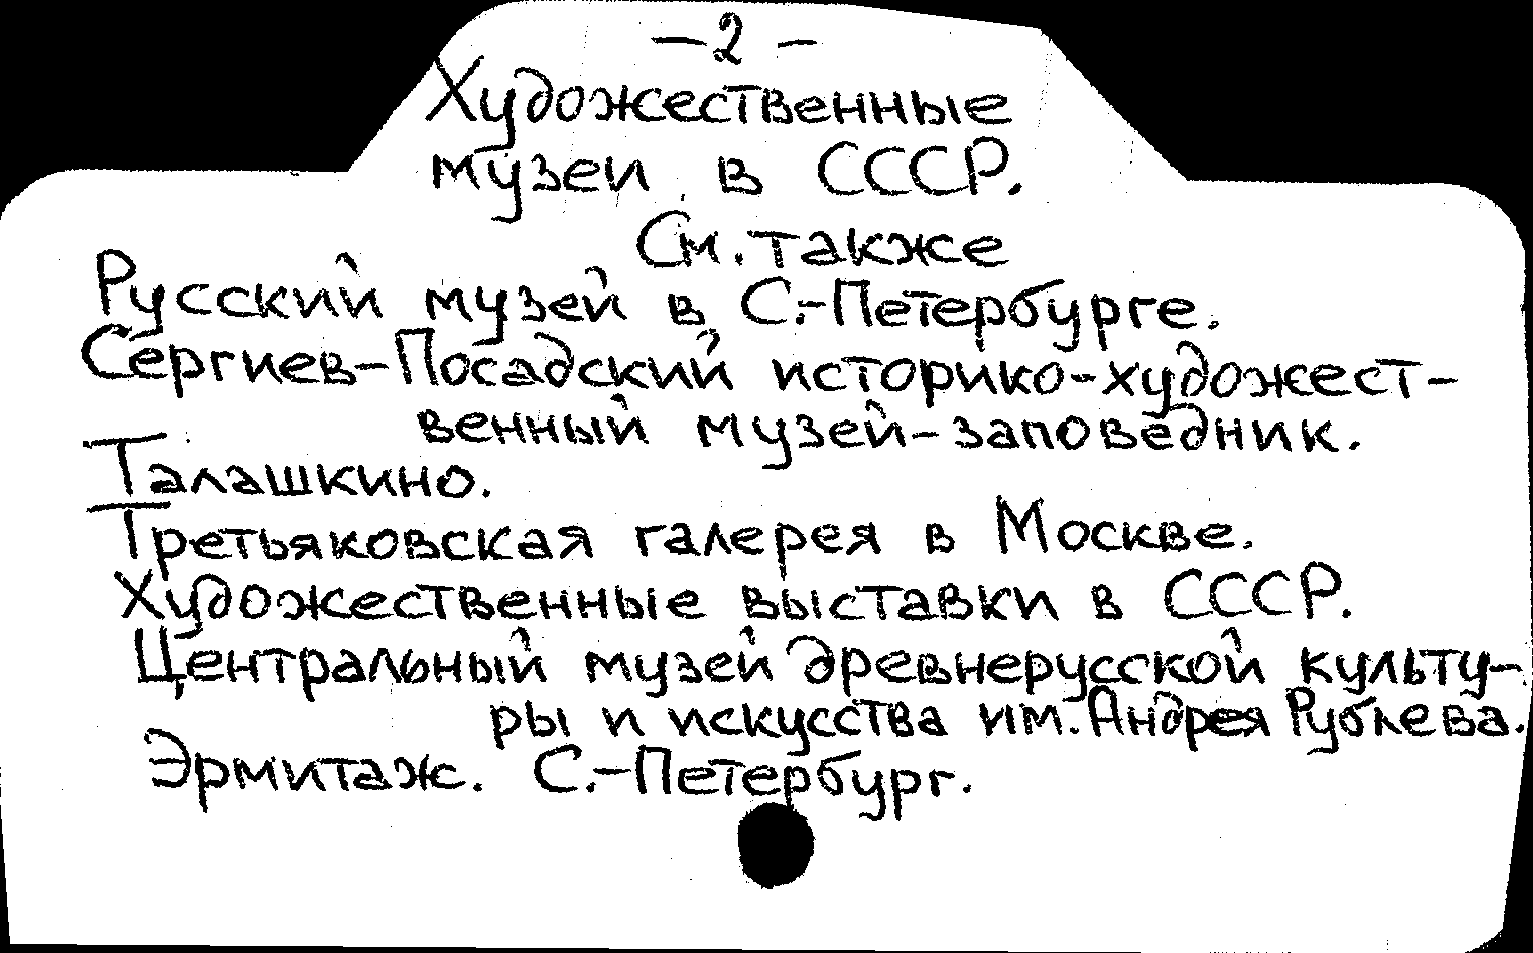 — 2 —
Художественные
музеи в СССР.
См. также
Русский музей в С.-Петербурге.
Сергиев-Посадский историко-художест-
венный музей-заповедник.
Талашкино.
Третьяковская галерея в Москве.
Художественные выставки в СССР.
Центральный музей древнерусской культу-
ры и искусства им. Андрея Рублева.
Эрмитаж. С.-Петербург.